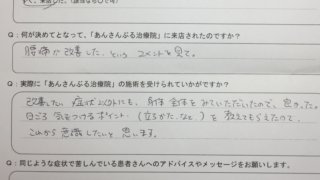 Q：何が決めてとなって、「あんさんぶる治療院」に来店されたのですか？
腰痛が改善した、という コメントを見て。
Q：実際に「あんさんぶる治療院」の施術を受けられていかがですか？
改善したい症状以外にも、身体全体をみていただいたので、良かった。
日ごろ気をつけるポイント（立ちかた、など）を教えてもらえたので、
これから意識したいと思います。
Q：同じような症状で苦しんでいる患者さんへのアドバイスやメッセージをお願いします。